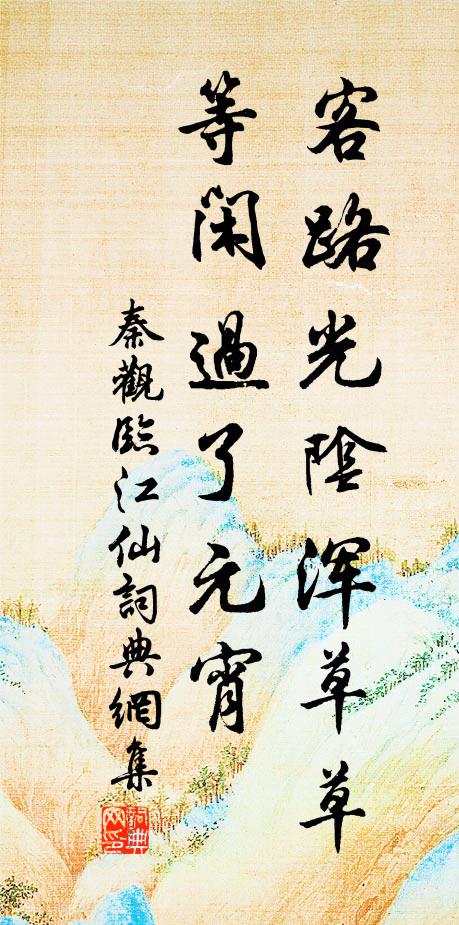 客路光陰浑草草
等闲過了元宵
秦觀臨江仙詞典網集
詞典網印